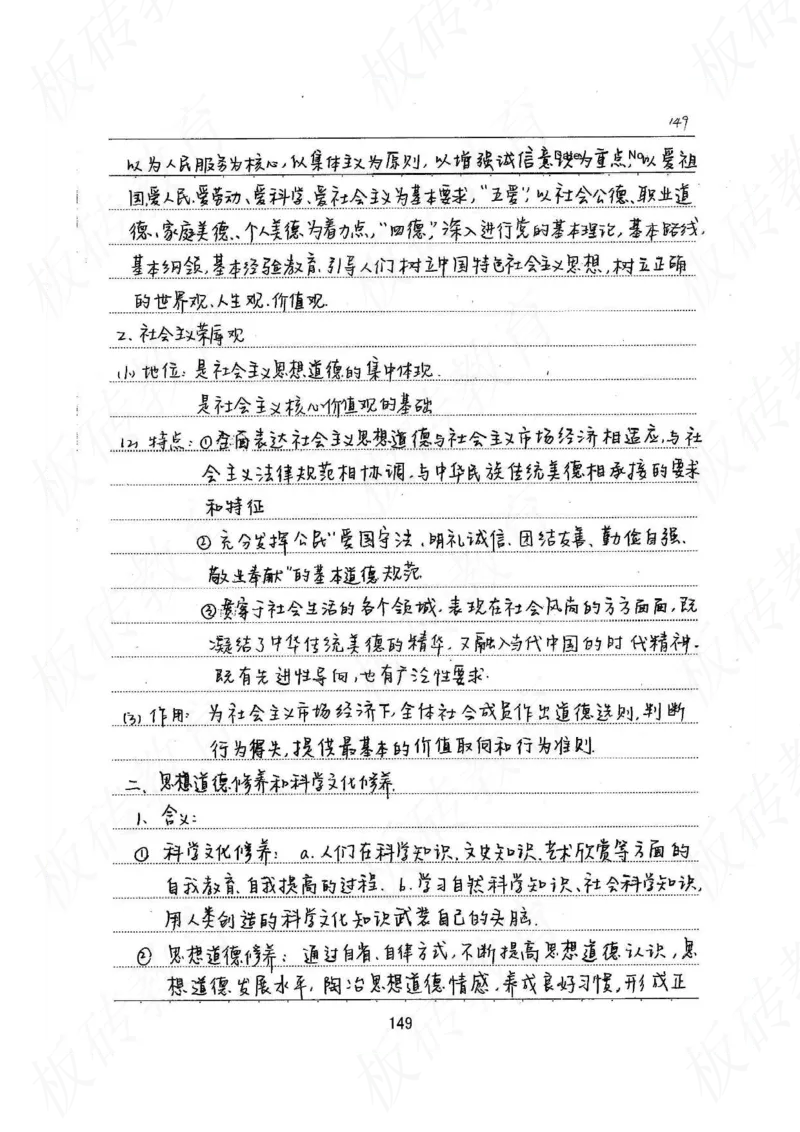 149
以为人民服务为核心,以集体主义为原则,以增强诚信意识为重点,以爱祖
国爱人民、爱劳动、爱科学、爱社会主义为基本要求,“五爱”;以社会公德、职业道
德、家庭美德、个人美德为着力点,“四德”,深入进行党的基本理论,基本路线,
基本纲领,基本经验教育,引导人们树立中国特色社会主义思想,树立正确
的世界观、人生观、价值观.
2、社会主义荣辱观
(1) 地位:是社会主义思想道德的集中体现.
是社会主义核心价值观的基础
(2) 特点:①全面表达社会主义思想道德与社会主义市场经济相适应,与社
会主义法律规范相协调,与中华民族传统美德相承接的要求
和特征
②充分发挥公民“爱国守法、明礼诚信、团结友善、勤俭自强、
敬业奉献”的基本道德规范
③贯穿于社会生活的各个领域,表现在社会风尚的方方面面,既
凝结了中华传统美德的精华,又融入当代中国的时代精神.
既有先进性导向,也有广泛性要求.
(3) 作用:为社会主义市场经济下,全体社会成员作出道德选则,判断
行为得失,提供最基本的价值取向和行为准则.
二、思想道德修养和科学文化修养.
1、含义:
① 科学文化修养: a.人们在科学知识,文史知识,艺术欣赏等方面的
自我教育、自我提高的过程. b.学习自然科学知识、社会科学知识,
用人类创造的科学文化知识武装自己的头脑.
② 思想道德修养:通过自省、自律方式,不断提高思想道德认识,思
想道德发展水平,陶冶思想道德情感,养成良好习惯,形成正
149
板砖教育